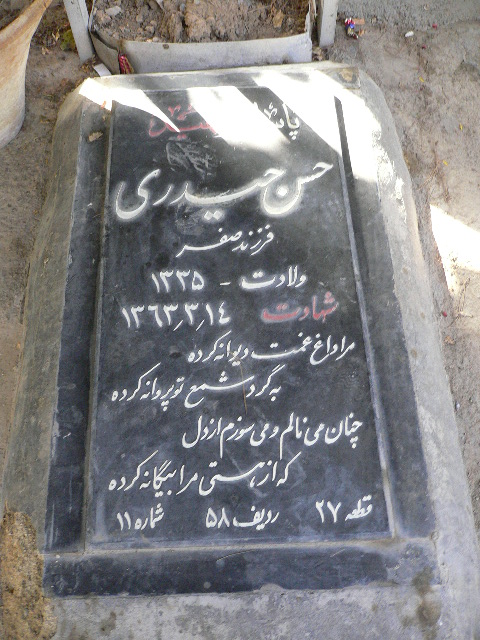 شهید
حسن حیدری
فرزند صفر
ولادت - ۱۳۳۵
شهادت ۱۳۶۳٫۳٫۱۴
مرا داغ غمت دیوانه کرده
به گرد شمع تو پروانه کرده
چنان می نالم و می سوزم از دل
که از هستی مرا بیگانه کرده
قطعه ۲۷ ردیف ۵۸ شماره ۱۱